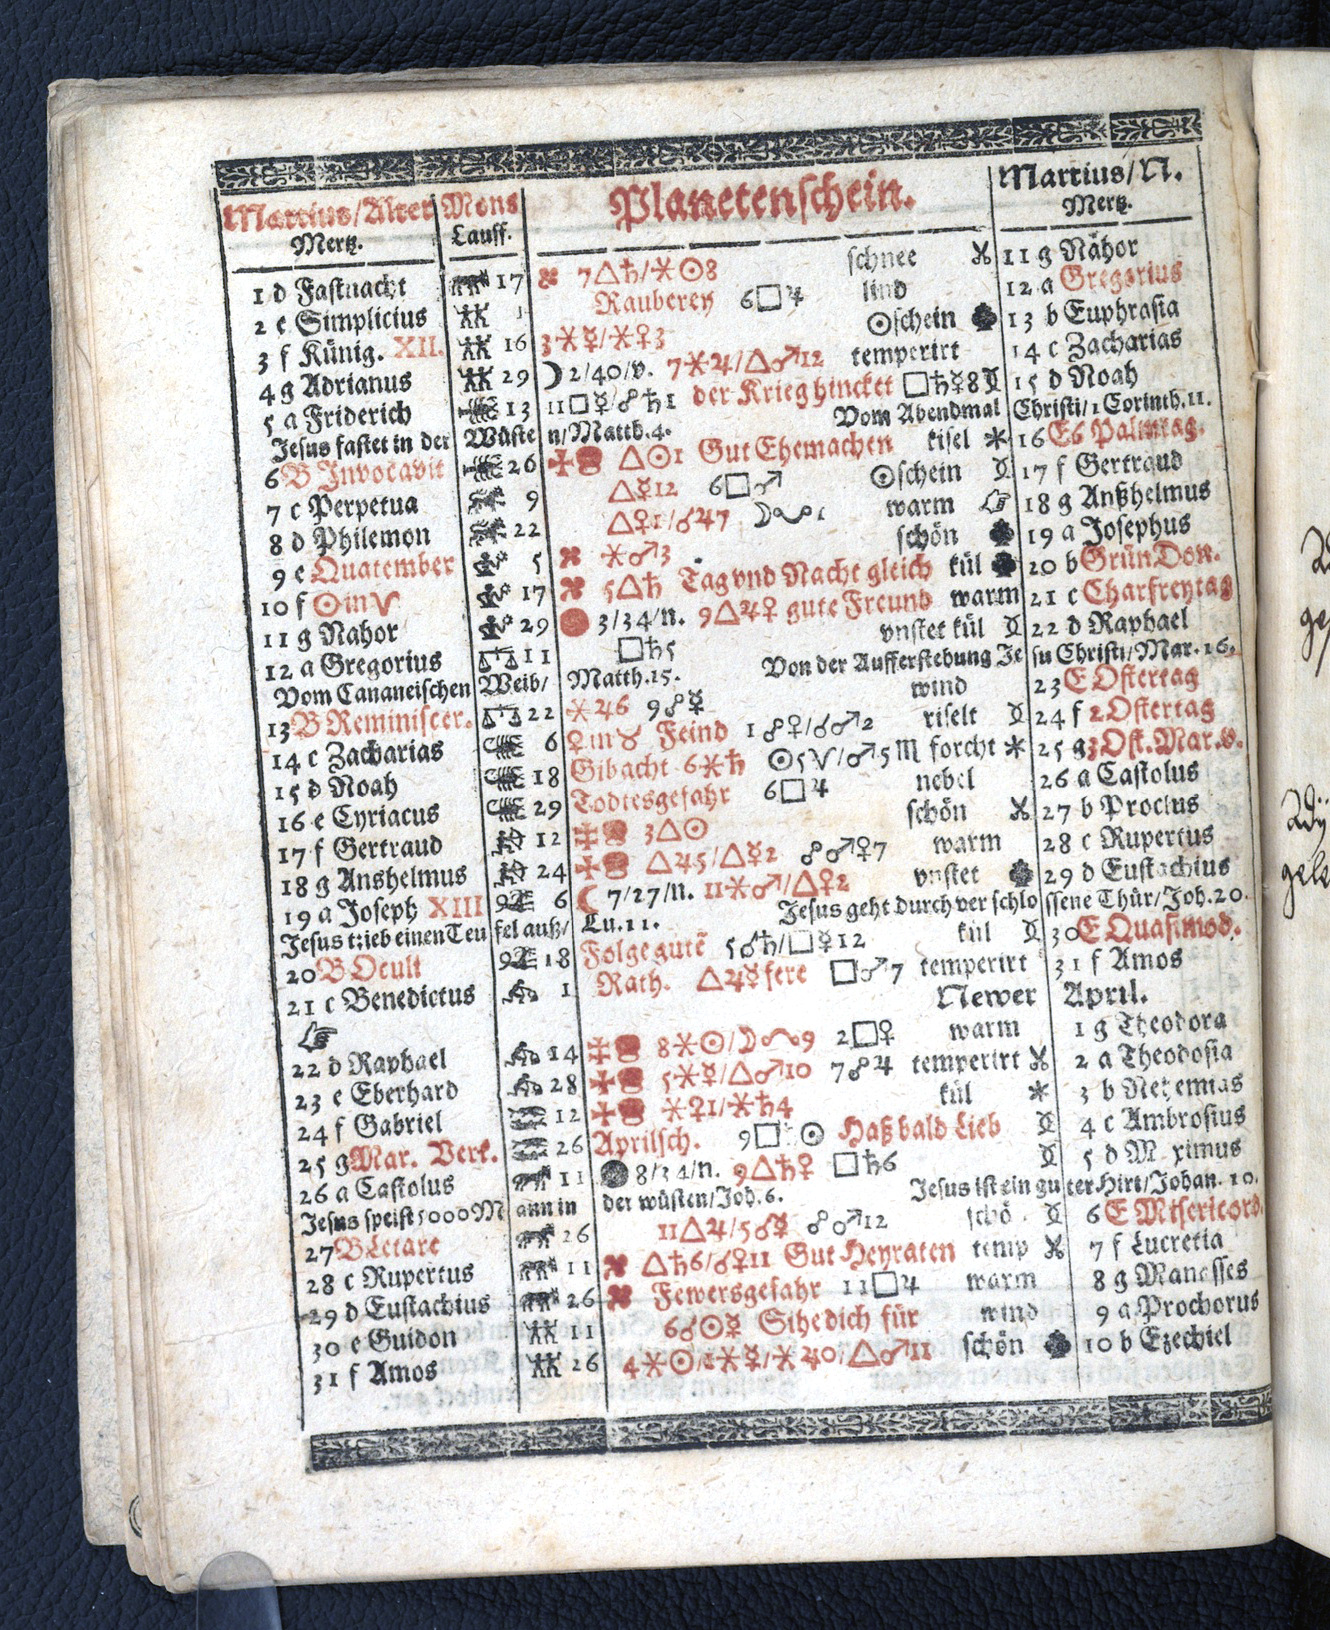 Martius/Alter Mons Planetenschein. Martius/N.
Mertz. Lauff. Mertz.
1 d Fastnacht 17 7△♄/⚹☉8 schnee 11 g Nahor
2 e Simplicius Rauberey 6□♃ lind 12 a Gregorius
3 f Künig. XII. 16 3⚹☿/⚹♀3 ☉schein 13 b Euphrasia
4 g Adrianus 29 ☽2/40/v. 7⚹♃/△♂12 temperirt 14 c Zacharias
5 a Friderich 13 11□☿/☍♄1 der Krieg hincket □♄☿8 15 d Noah
Jesus fastet in der Wüste n/Matth.4. Vom Abendmal Christi/1 Corinth.11.
6 B Invocavit 26 △☉1 Gut Ehemachen kisel 16 E6 Palmtag.
7 c Perpetua 9 △☿12 6□♂ ☉schein 17 f Gertraud
8 d Philemon 22 △♀1/☌♃7 warm 18 g Anßhelmus
9 e Quatember 5 ⚹♂3 schön 19 a Josephus
10 f ☉in♈ 17 5△♄ Tag vnd Nacht gleich kül 20 b Grün Don.
11 g Nahor 29 3/34/n. 9△♃♀ gute Freund warm 21 c Charfreytag
12 a Gregorius 11 □♄5 vnstet kül 22 d Raphael
Vom Cananeischen Weib/ Matth.15. Von der Aufferstehung Je su Christi/Mar.16.
13 B Reminiscer. 22 ⚹♃6 9☍☿ wind 23 E Ostertag
14 c Zacharias 6 ♀in♉ Feind 1☍♀/☌♂2 riselt 24 f 2 Ostertag
15 d Noah 18 Gibacht 6⚹♄ ☉5♈/♂5♏ forcht 25 g 3 Ost. Mar.v.
16 e Cyriacus 29 Todtesgefahr 6□♃ nebel 26 a Castolus
17 f Gertraud 12 3△☉ schön 27 b Proclus
18 g Anshelmus 24 △♃5/△☿2 ☍♂♀7 warm 28 c Rupertus
19 a Joseph XIII 6 ☾7/27/n. 11⚹♂/△♀2 vnstet 29 d Eustachius
Jesus trieb einen Teu fel auß/ Lu.11. Jesus geht durch ver schlo ssene Thür/Joh.20.
20 B Oculi 18 Folge gutē 5☌♄/□☿12 kül 30 E Quasimod.
21 c Benedictus 1 Rath. △♃☿fere □♂7 temperirt 31 f Amos
Newer April.
22 d Raphael 14 8⚹☉/☽ 9 2□♀ warm 1 g Theodora
23 e Eberhard 28 5⚹☿/△♂10 7☍♃ temperirt 2 a Theodosia
24 f Gabriel 12 ⚹♀1/⚹♄4 kül 3 b Nehemias
25 g Mar. Verk. 26 Aprilsch. 9□ ☉ Haß bald Lieb 4 c Ambrosius
26 a Castolus 11 8/34/n. 9△♄♀ □♄6 5 d M ximus
Jesus speist 5000 M ann in der wüsten/Joh.6. Jesus ist ein gu ter Hirt/Johan.10.
27 B Letare 26 11△♃/5☌☿ ☍♂12 schö 6 E Misericord.
28 c Rupertus 11 △♄6/☌♀11 Gut Heyraten temp 7 f Lucretia
29 d Eustachius 26 Fewersgefahr 11□♃ warm 8 g Manasses
30 e Guidon 11 6☌☉☿ Sihe dich für wind 9 a Prochorus
31 f Amos 26 4⚹☉/1⚹☿/⚹♃0/△♂11 schön 10 b Ezechiel